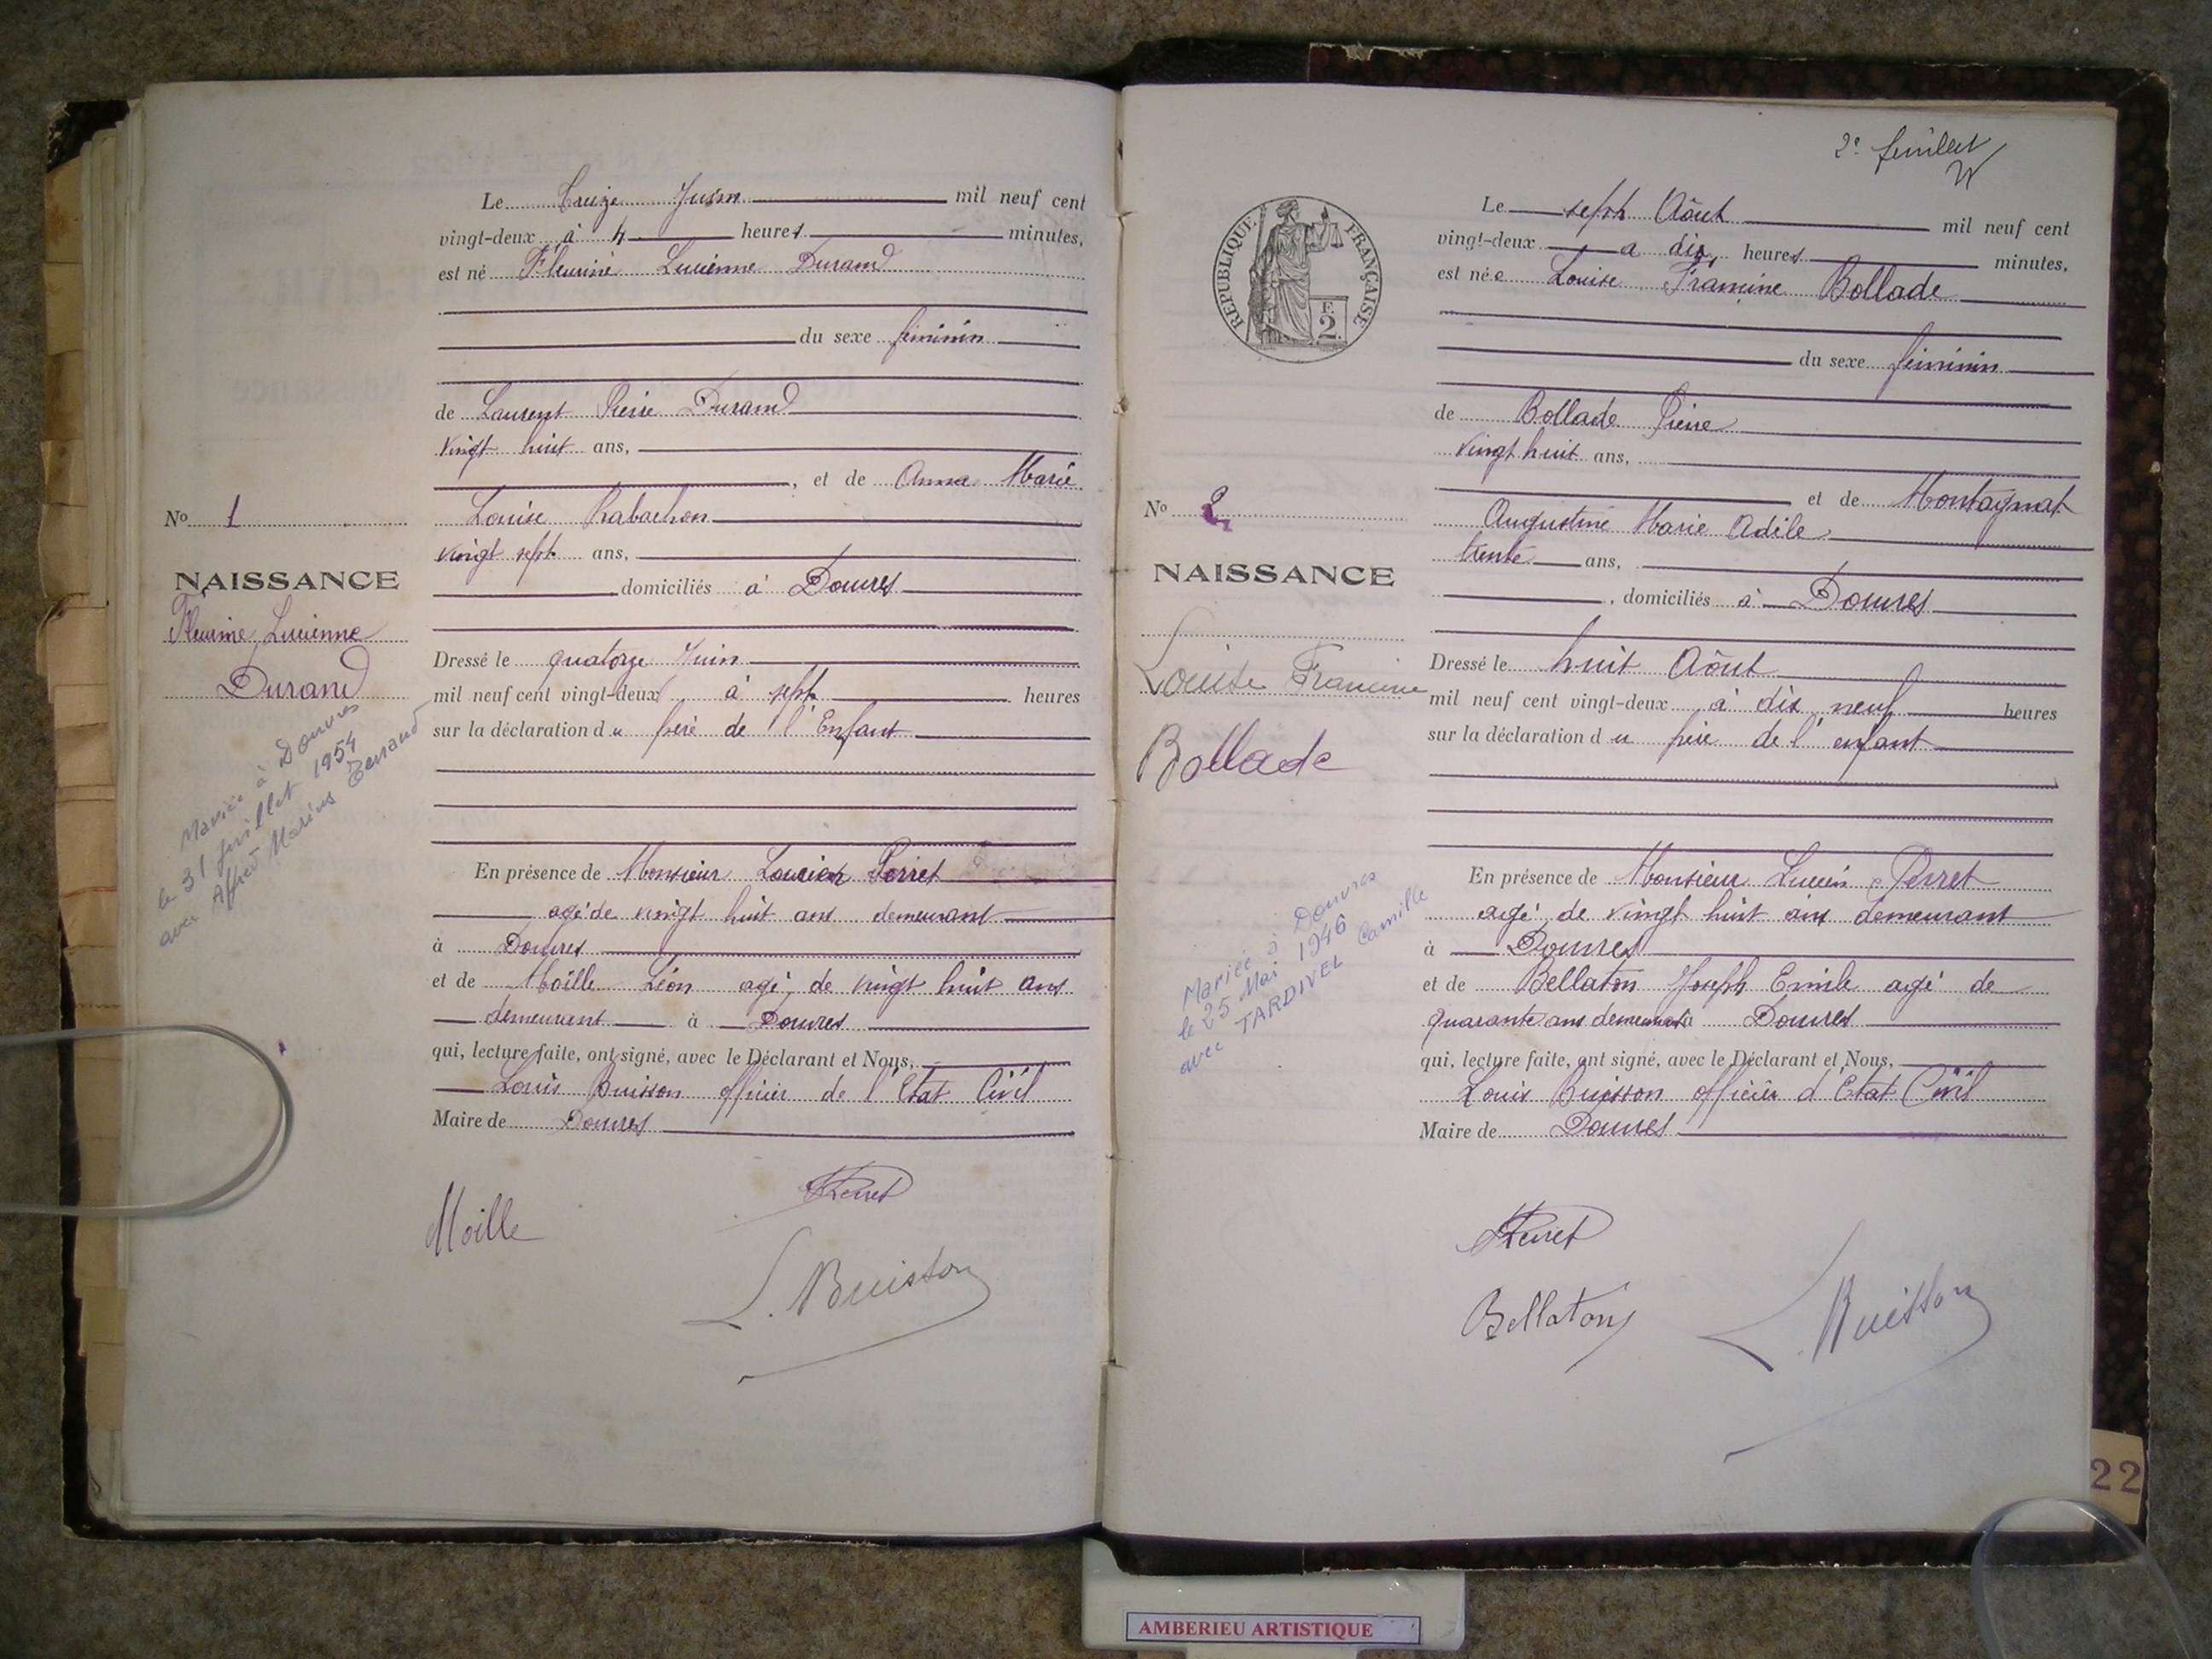 Le Treize Juin mil neuf cent
vingt-deux à 4 heures minutes,
est né Fleurine Lucienne Durand
du sexe féminin
de Laurent Pierre Durand
vingt huit ans,
, et de Anna Marie
Louise Rabachon
vingt sept ans,
domiciliés à Douvres
Dressé le quatorze Juin
mil neuf cent vingt-deux à sept heures
sur la déclaration du père de l'Enfant
En présence de Monsieur Lucien Perret
agé de vingt huit ans demeurant
à Douvres
et de Moille Léon agé de vingt huit ans
demeurant à Douvres
qui, lecture faite, ont signé, avec le Déclarant et Nous,
Louis Buisson officier de l'Etat Civil
Maire de Douvres
No 1
NAISSANCE
Fleurine Lucienne
Durand
Mariée à Douvres
le 31 juillet 1954
avec Alfred Marius
Moille
Perret
L. Buisson
2e feuillet
RÉPUBLIQUE FRANÇAISE
F. 2
Le sept Août mil neuf cent
vingt-deux à dix heures minutes,
est née Louise Francine Bollade
du sexe féminin
de Bollade Pierre
vingt huit ans,
et de Montagnat
Augustine Marie Adèle
trente ans,
, domiciliés à Douvres
Dressé le huit Août
mil neuf cent vingt-deux à dix neuf heures
sur la déclaration du père de l'enfant
En présence de Monsieur Lucien Perret
agé de vingt huit ans demeurant
à Douvres
et de Bellaton Joseph Emile agé de
quarante ans demeurant à Douvres
qui, lecture faite, ont signé, avec le Déclarant et Nous,
Louis Buisson officier d'Etat Civil
Maire de Douvres
No 2
NAISSANCE
Louise Francine
Bollade
Mariée à Douvres
le 25 Mai 1946
avec TARDIVEL Camille
Perret
Bellaton
L. Buisson
22
AMBERIEU ARTISTIQUE